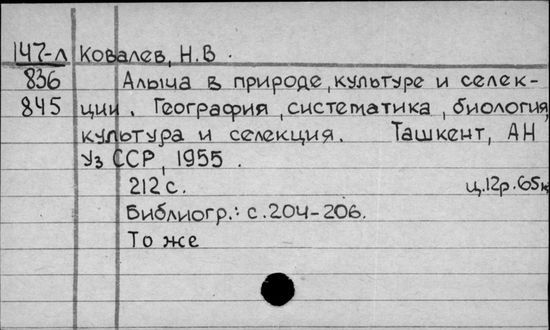 147-л Ковалев, Н.В.
836 Алыча в природе, культуре и селек-
845 ции. География, систематика, биология,
культура и селекция. Ташкент, АН
Уз ССР, 1955.
212 с. ц.12р.65к
Библиогр.: с.204-206.
То же